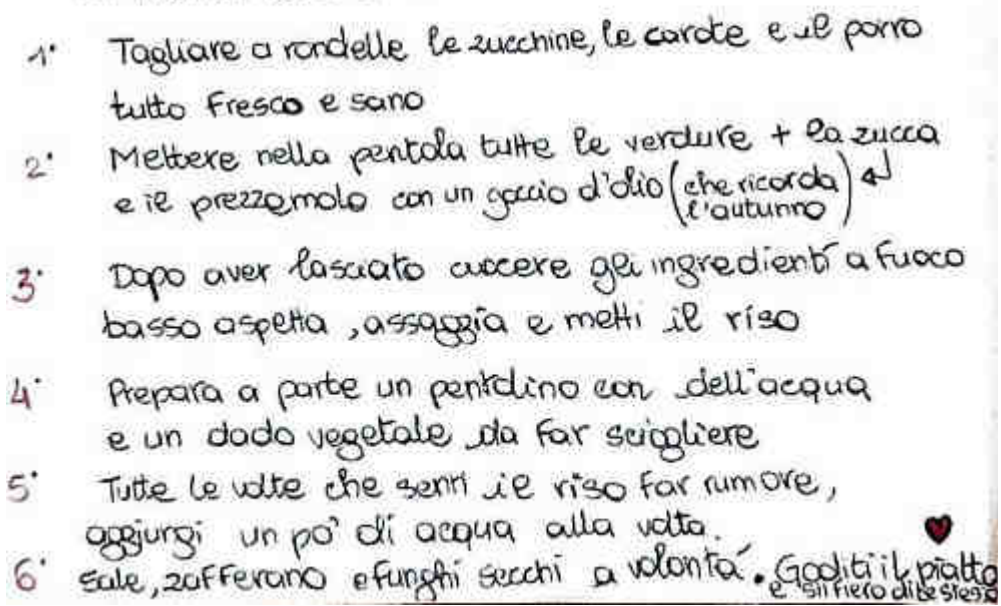 1° Tagliare a rondelle le zucchine, le carote e il porro
tutto fresco e sano
2° Mettere nella pentola tutte le verdure + la zucca
e il prezzemolo con un goccio d'olio (che ricorda l'autunno)
3° Dopo aver lasciato cuocere gli ingredienti a fuoco
basso aspetta, assaggia e metti il riso
4° Prepara a parte un pentolino con dell'acqua
e un dado vegetale da far sciogliere
5° Tutte le volte che senti il riso far rumore,
aggiungi un po' di acqua alla volta.
6° Sale, zafferano e funghi secchi a volontà. Goditi il piatto
e sii fiero di te stesso